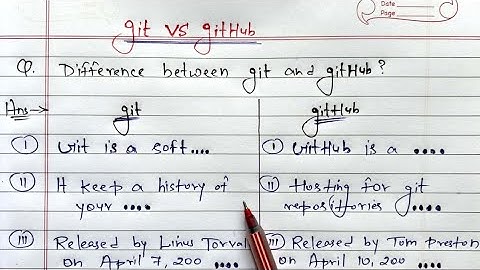 Date
Page
git vs gitHub
Q. Difference between git and gitHub?
Ans→ git
I Git is a soft....
II It keep a history of
your ....
III Released by Linus Torval
on April 7, 200 ....
gitHub
I GitHub is a ....
II Hosting for git
repositories ....
III Released by Tom Preston
on April 10, 200 ....